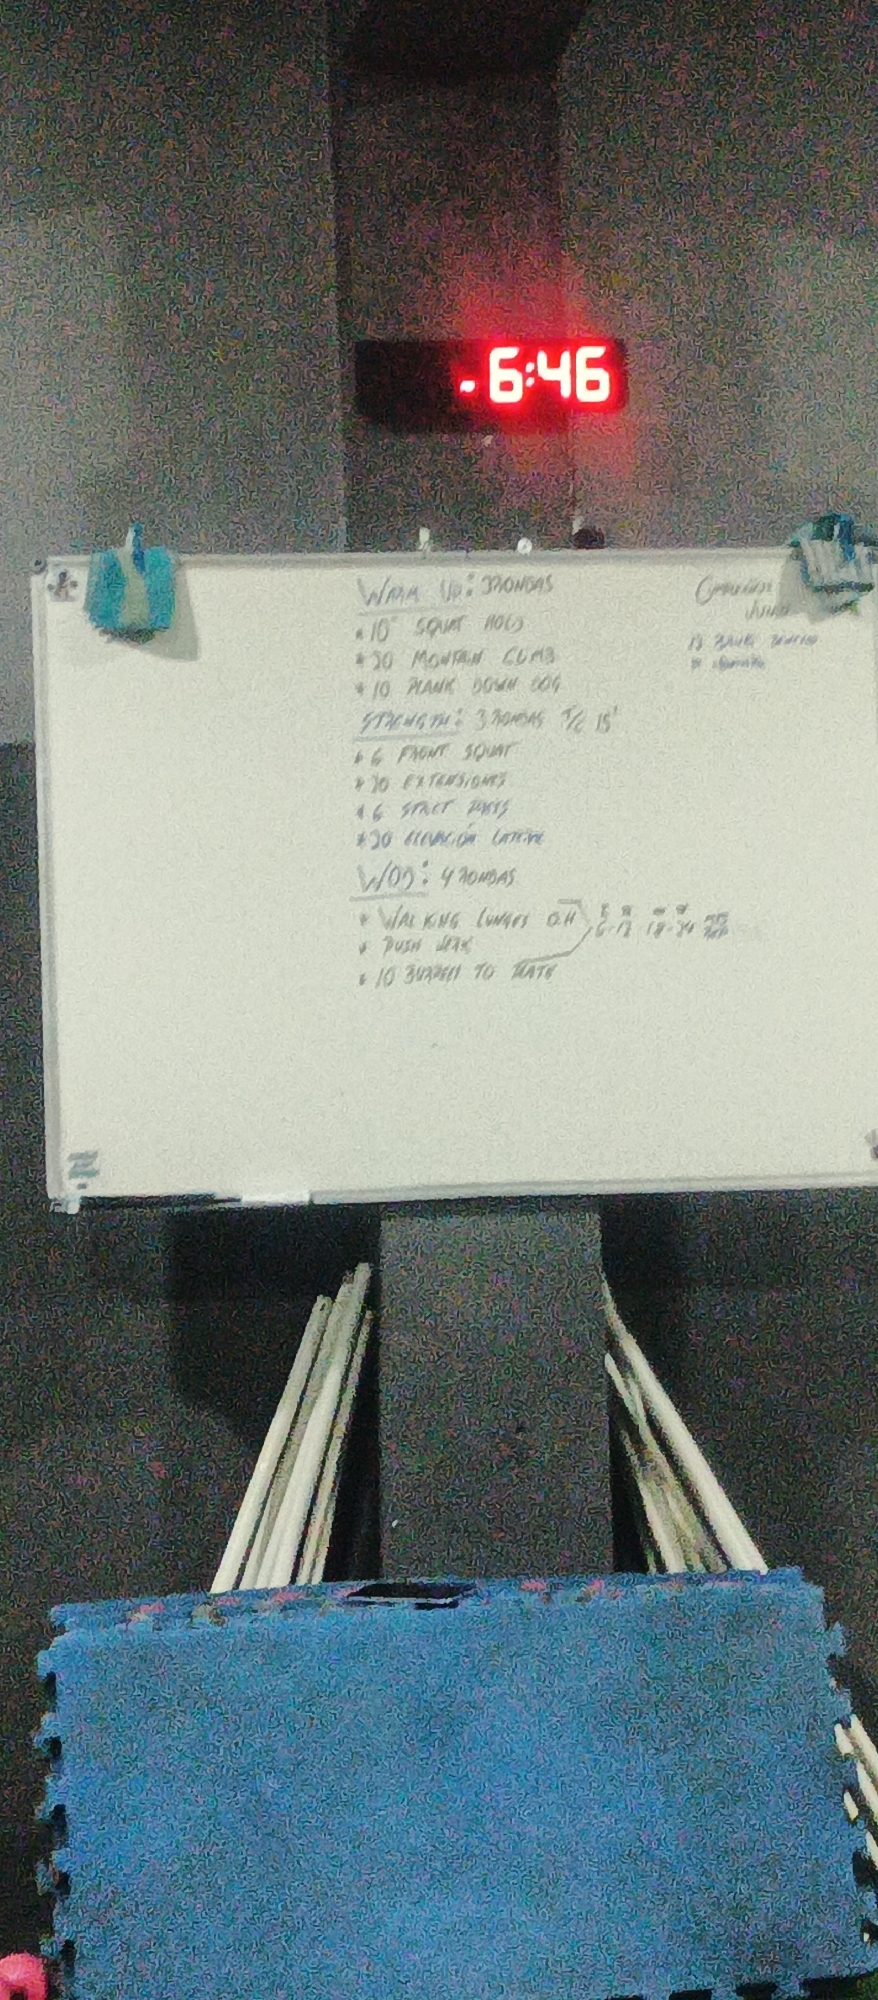 6:46
WARM UP: 3 RONDAS
* 10" SQUAT HOLD
* 20 MONTAIN CLIMB
* 10 PLANK DOWN DOG
STRENGTH: 3 RONDAS T/C 15'
* 6 FRONT SQUAT
* 20 EXTENSIONES
* 6 STRICT PRESS
* 20 ELEVACIÓN LATERAL
WOD: 4 RONDAS
* WALKING LUNGES O.H 6-12 18-24
* PUSH JERK
* 10 BURPEES TO PLATE